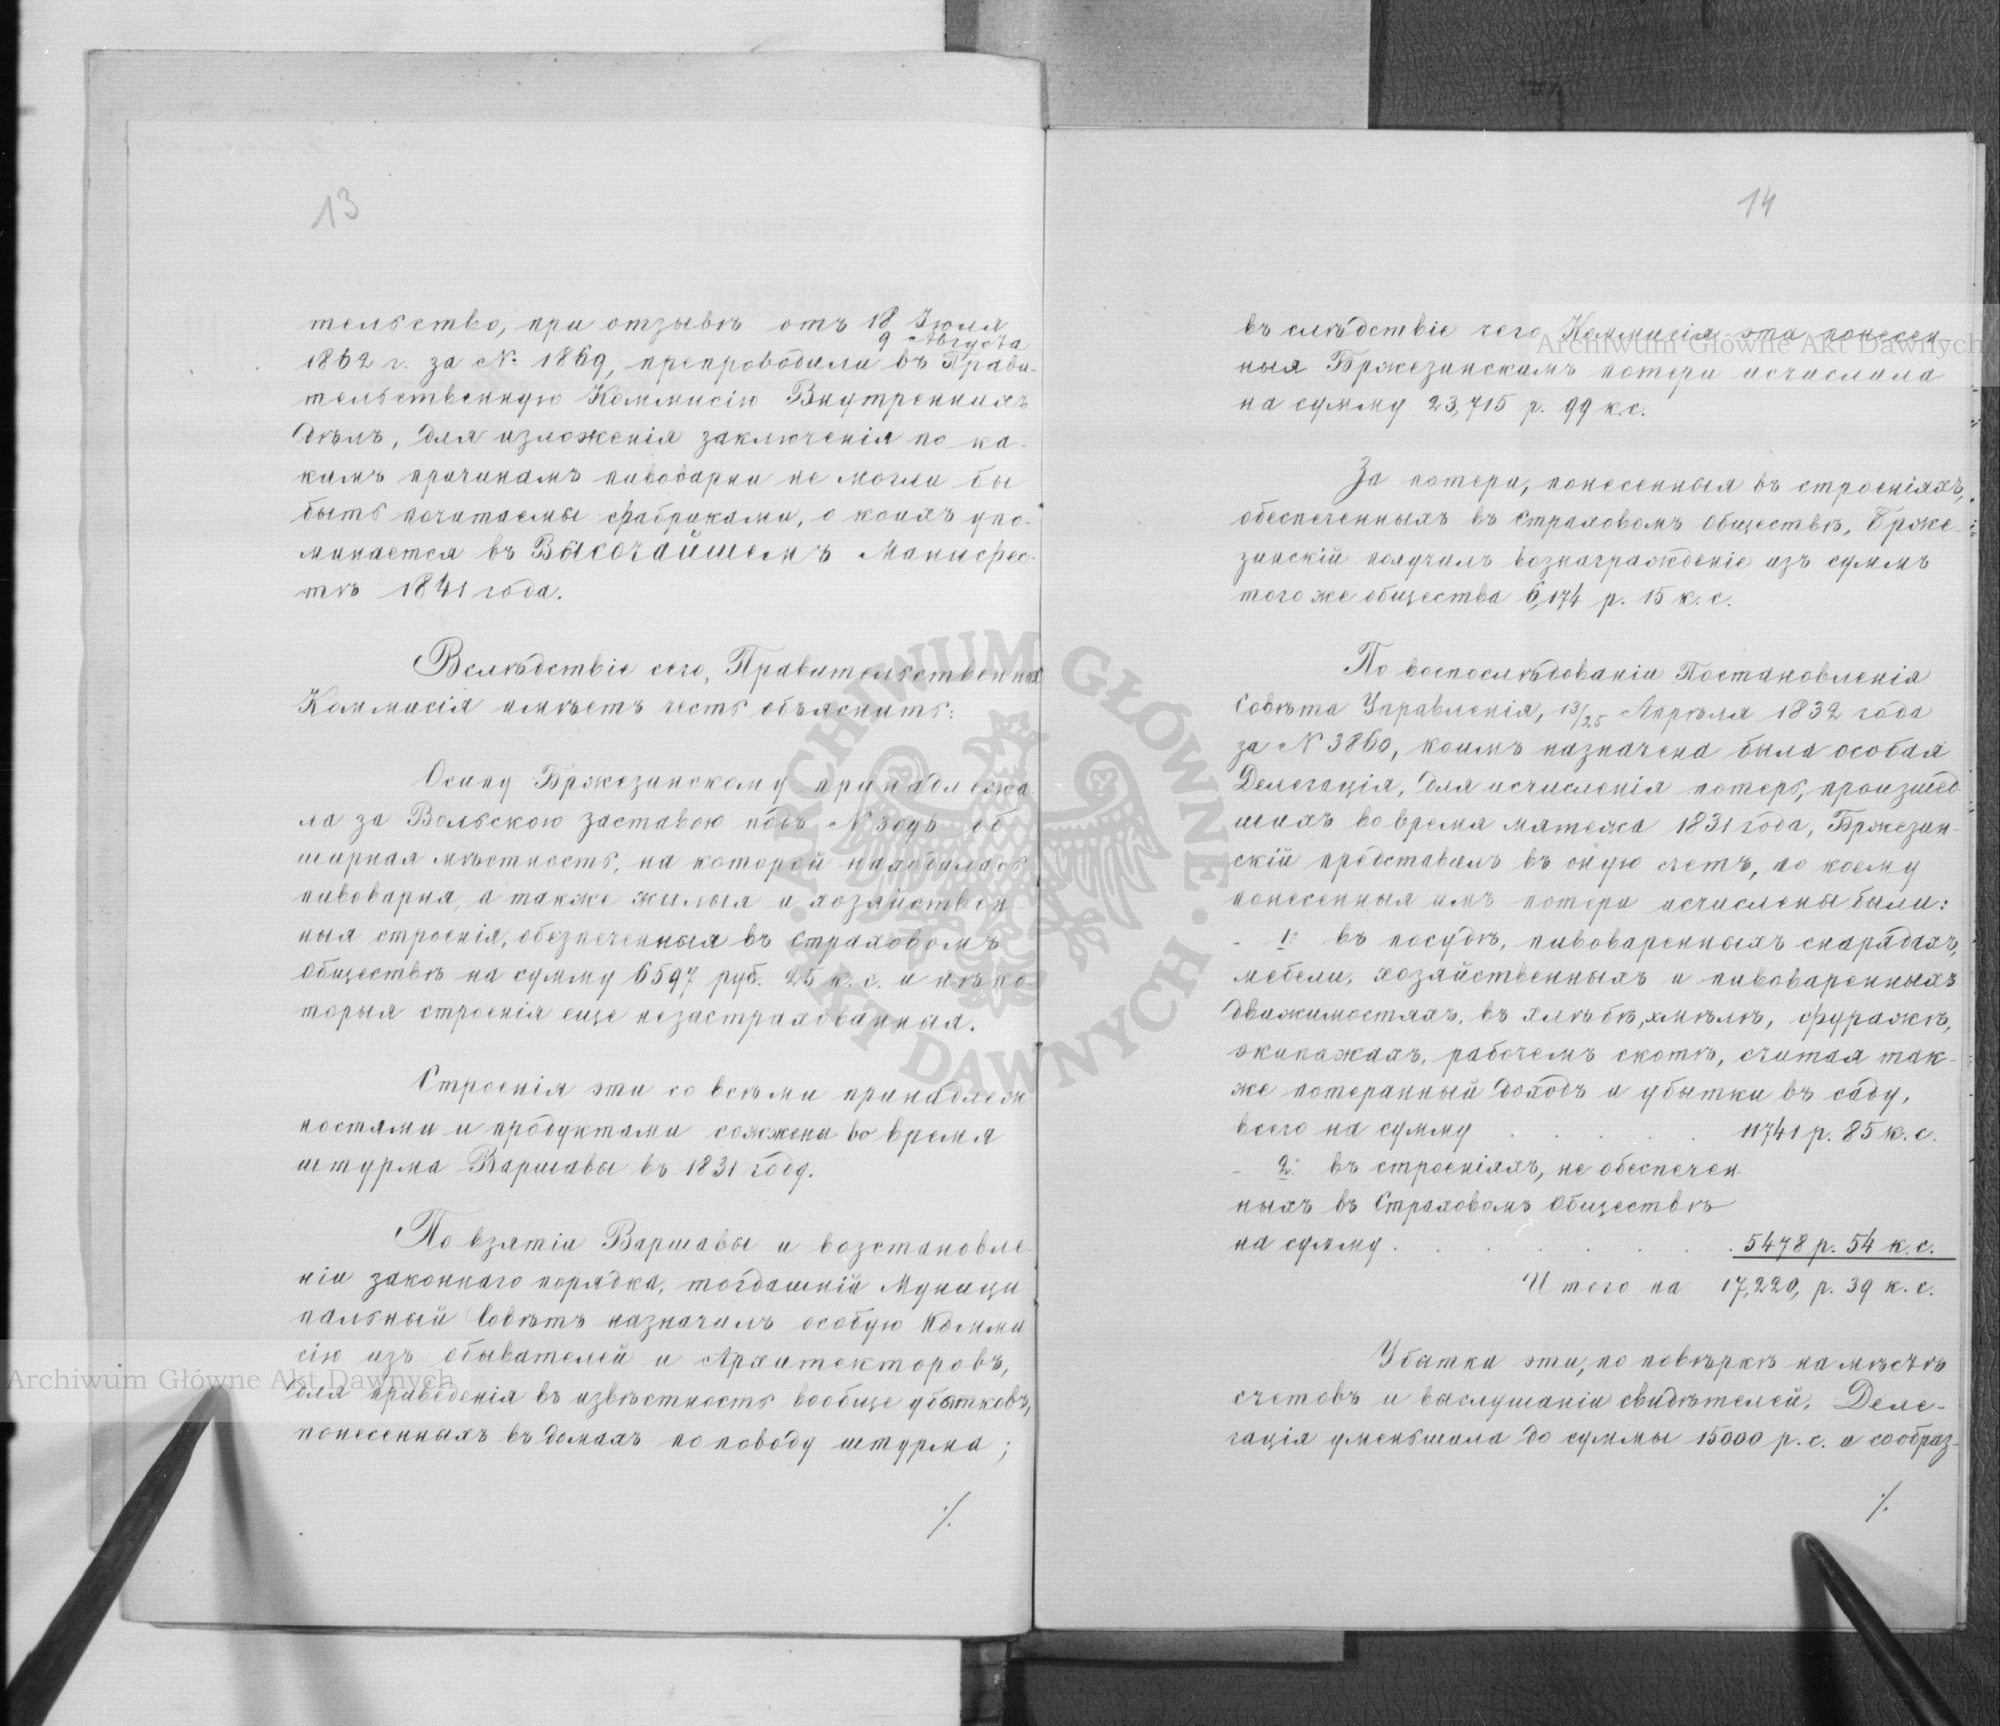 13
тельство, при отзывѣ отъ 18 Іюля
9 Августа
1862 г. за № 1869, препроводили въ Прави-
тельственную Коммисію Внутреннихъ
Дѣлъ, для изложенія заключенія по ка-
кимъ причинамъ пивоварни не могли бы
быть почитаемы фабриками, о коихъ упо-
минается въ Высочайшемъ Манифес-
тѣ 1841 года.
Вслѣдствіе сего, Правительственная
Коммисія имѣетъ честь объяснить:
Осипу Бржезинскому принадлежа
ла за Вольскою заставою подъ № 3096 об
ширная мѣстность, на которой находилась
пивоварня, а также жилыя и хозяйствен-
ныя строенія, обезпеченныя въ Страховомъ
Обществѣ на сумму 6597 руб. 25 к. с. и нѣко
торыя строенія еще незастрахованныя.
Строенія эти со всѣми принадлеж
ностями и продуктами сожжены во время
штурма Варшавы въ 1831 году.
По взятіи Варшавы и возстановле
ніи законнаго порядка, тогдашній Муници
пальный Совѣтъ назначилъ особую Комми
сію изъ обывателей и Архитекторовъ,
для приведенія въ извѣстность вообще убытковъ,
понесенныхъ въ домахъ по поводу штурма;
./.
14
въ слѣдствіе чего Коммисія эта понесен
ныя Бржезинскимъ потери исчислила
на сумму 23,715 р. 99 к.с.
За потери, понесенныя въ строеніяхъ,
обеспеченныхъ въ Страховомъ Обществѣ, Брже-
зинскій получилъ вознагражденіе изъ суммъ
того же общества 6,174 р. 15 к. с.
По воспослѣдованіи Постановленія
Совѣта Управленія, 13/25 Апрѣля 1832 года
за № 3860, коимъ назначена была особая
Делегація, для исчисленія потерь, произшед
шихъ во время мятежа 1831 года, Бржезин-
скій представилъ въ оную счетъ, по коему
понесенныя имъ потери исчислены были:
- 1: въ посудѣ, пивоваренныхъ снарядахъ,
мебели, хозяйственныхъ и пивоваренныхъ
движимостяхъ, въ хлѣбѣ, хмѣлѣ, фуражѣ,
экипажахъ, рабочемъ скотѣ, считая так-
же потерянный доходъ и убытки въ саду,
всего на сумму . . . . . 11741 р. 85 к. с.
- 2: въ строеніяхъ, не обеспечен
ныхъ въ Страховомъ Обществѣ
на сумму . . . . . . . 5478 р. 54 к. с.
Итого на 17,220, р. 39 к. с.
Убытки эти, по повѣркѣ на мѣстѣ
счетовъ и выслушаніи свидѣтелей, Деле-
гація уменьшила до суммы 15000 р. с. и сообраз-
./.
Archiwum Główne Akt Dawnych
Archiwum Główne Akt Dawnych
ARCHIWUM GŁÓWNE AKT DAWNYCH